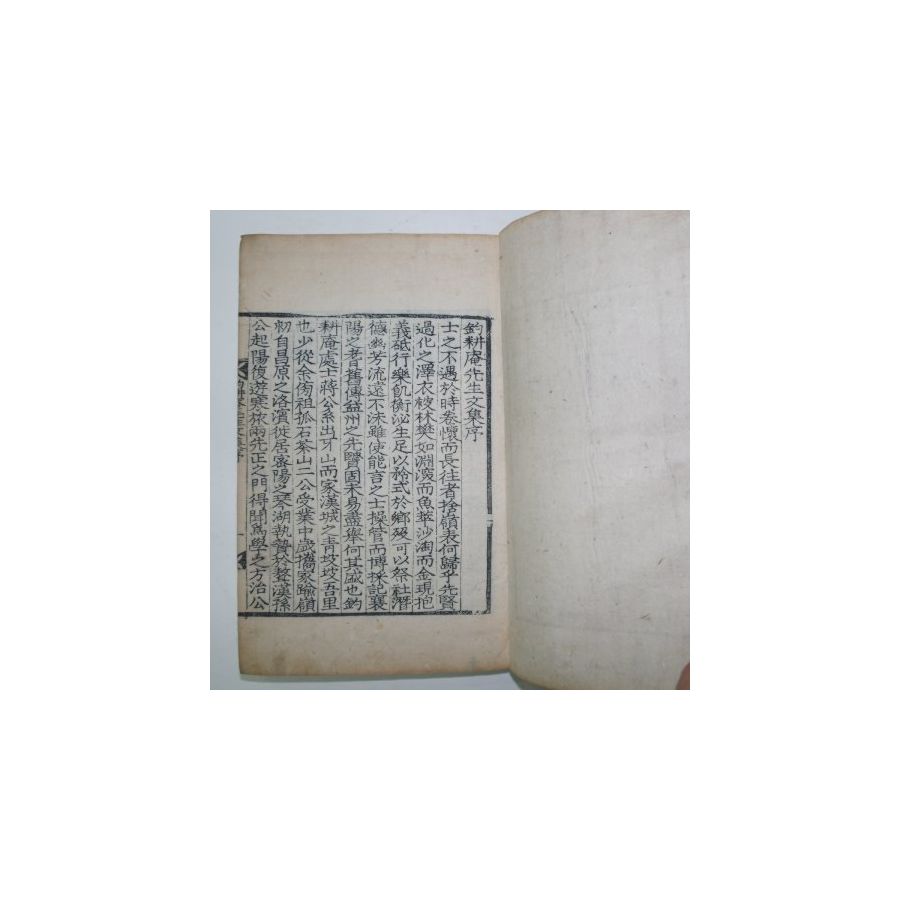 釣耕庵先生文集序
士之不遇於時卷懷而長往者捨嶺表何歸乎先賢
過化之澤衣被林樊如淵濚而魚萃沙淘而金現抱
義砥行樂飢衡泌生足以矜式於鄕歿可以祭社潛
德幽芳流遠不沫雖使能言之士操管而博採記襄
陽之耆舊傳益州之先賢固未易盡擧何其盛也釣
耕庵處士蔣公系出牙山而家漢城之靑坡坡吾里
也少從余傍祖孤石茶山二公受業中歲攜家踰嶺
初自昌原之洛濱徙居密陽之琴湖執贄於聱漢孫
公起陽復遊寒旅兩先正之門得聞爲學之方治公